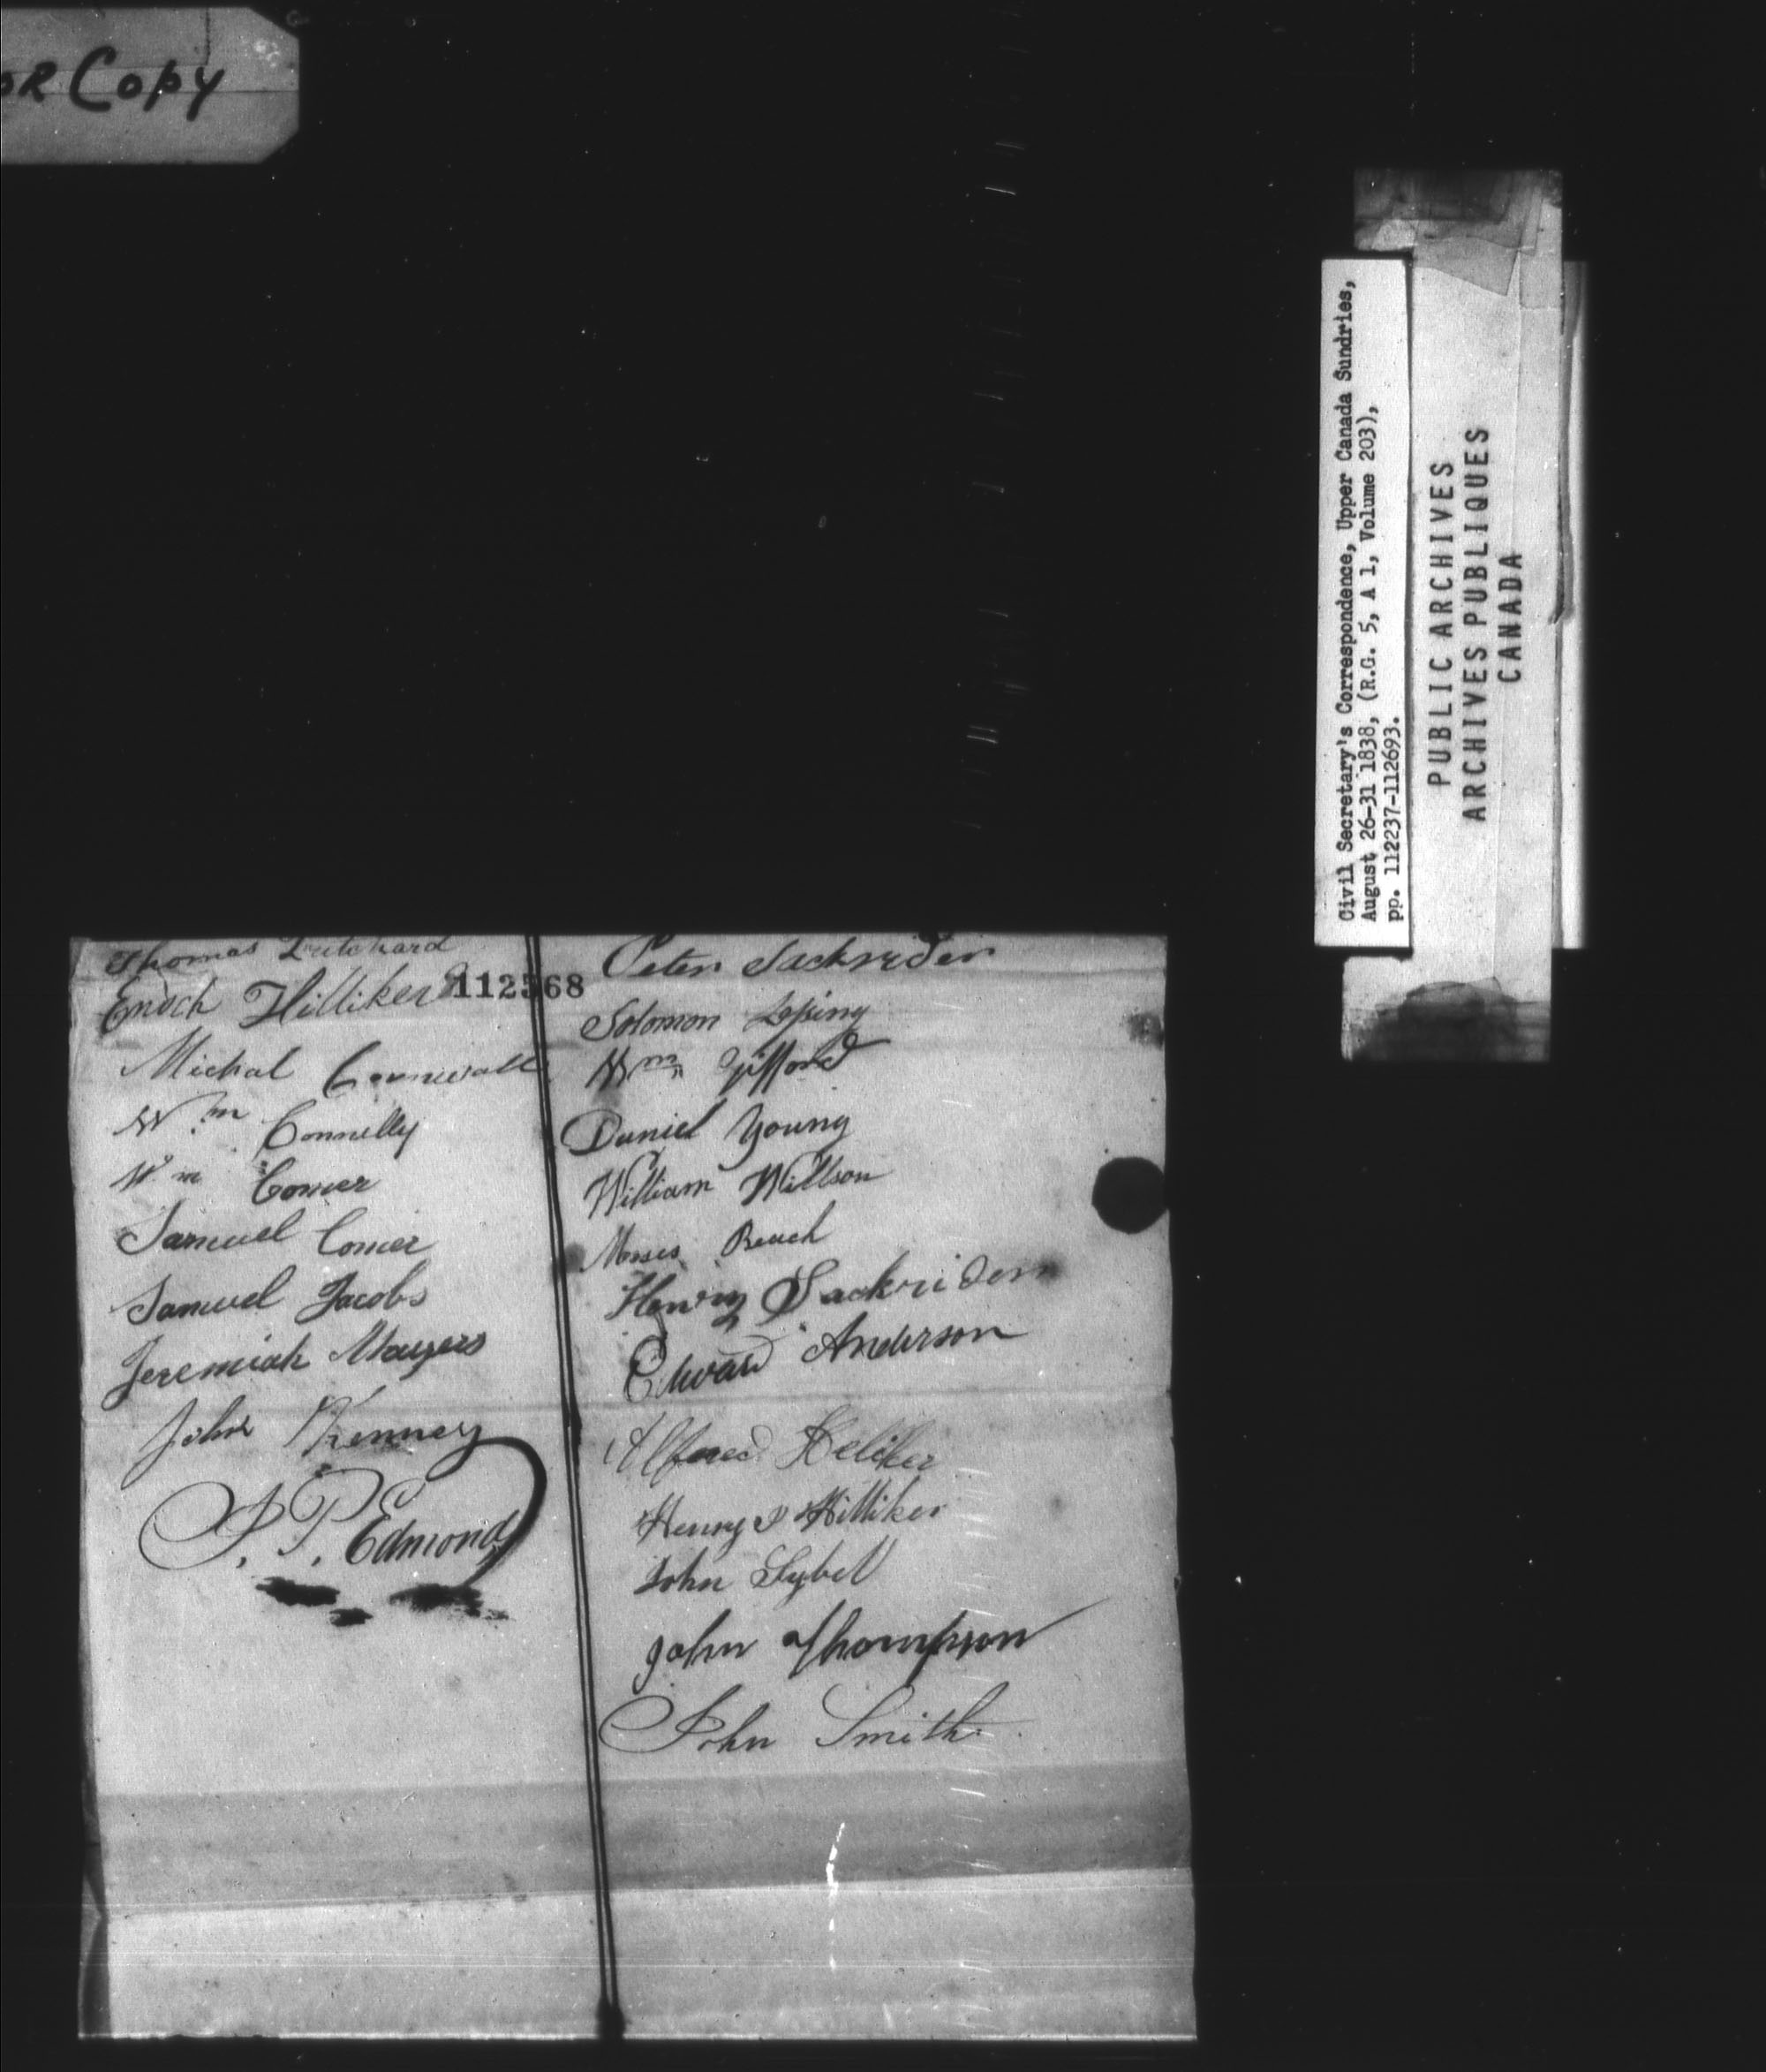 OR Copy
Civil Secretary's Correspondence, Upper Canada Sundries,
August 26-31 1838, (R.G. 5, A 1, Volume 203),
pp. 112237-112693.
PUBLIC ARCHIVES
ARCHIVES PUBLIQUES
CANADA
112568
Thomas Pritchard
Enoch Hilliker
Michal Cornwall
Wm Connelly
Wm Comer
Samuel Comer
Samuel Jacobs
Jeremiah Mayers
John Kenney
J. P. Edmond
Peter Sackrider
Solomon
Wm Gifford
Daniel Young
William Willson
Moses Beach
Henry Sackrider
Edward Anderson
Alfred Heliker
Henry Hilliker
John
John Thompson
John Smith